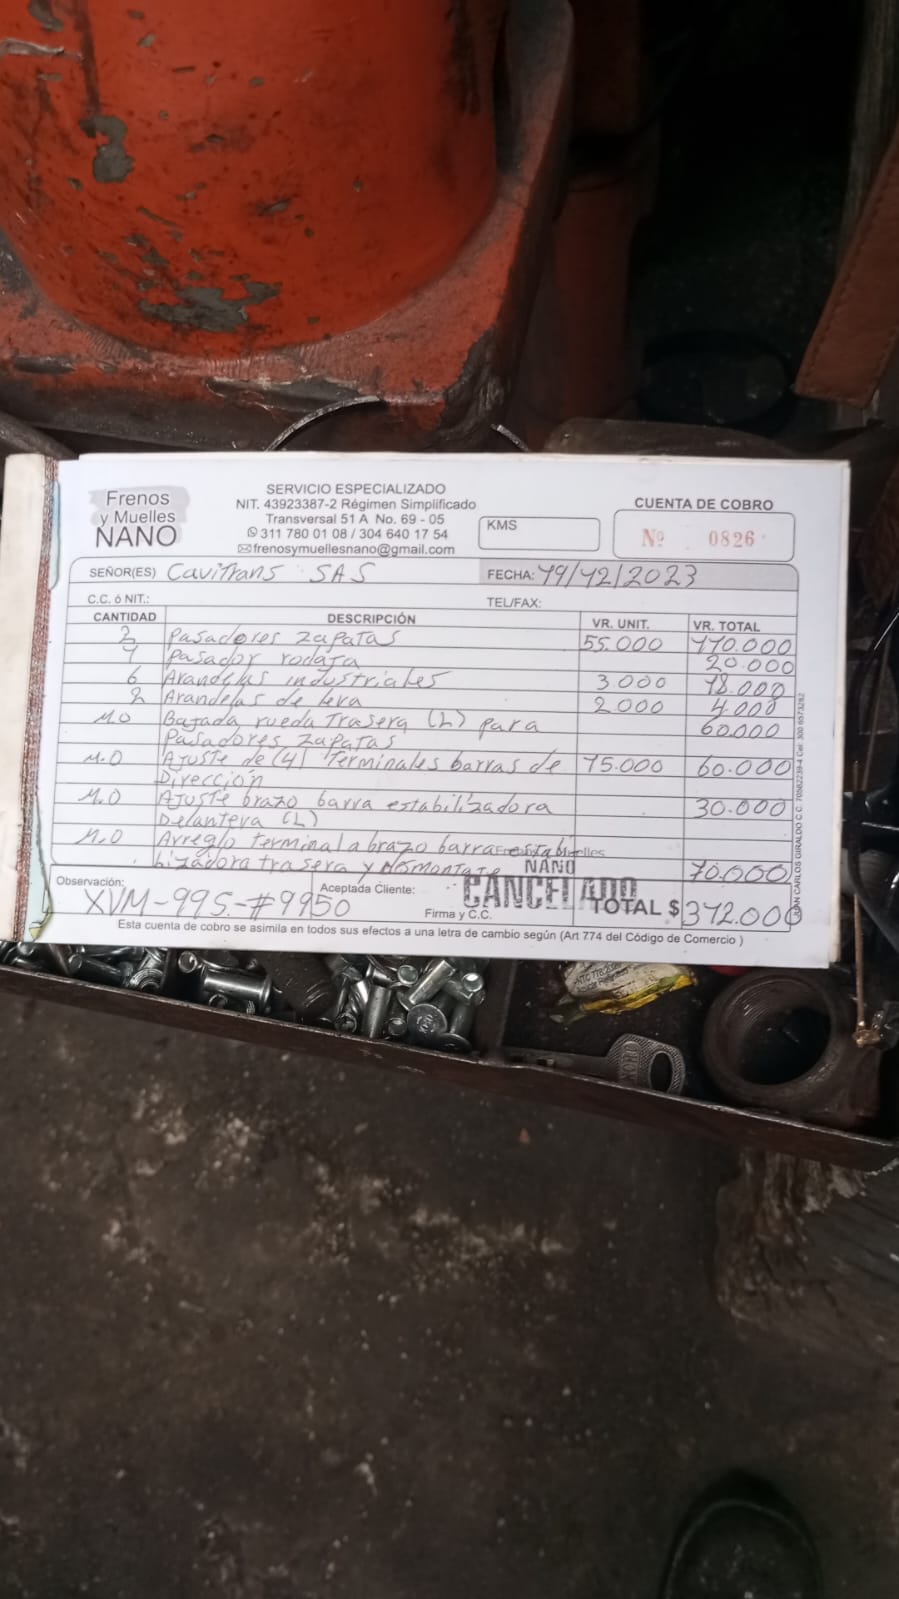 Frenos
y Muelles
NANO
SERVICIO ESPECIALIZADO
NIT. 43923387-2 Régimen Simplificado
Transversal 51 A No. 69 - 05
311 780 01 08 / 304 640 17 54
frenosymuellesnano@gmail.com
KMS
CUENTA DE COBRO
Nº 0826
SEÑOR(ES) Cavitrans SAS FECHA: 19/12/2023
C.C. ó NIT.: TEL/FAX:
CANTIDAD DESCRIPCIÓN VR. UNIT. VR. TOTAL
2 Pasadores zapatas 55.000 110.000
1 Pasador rodaja 20.000
6 Arandelas industriales 3000 18.000
2 Arandelas de leva 2000 4.000
M.O Bajada rueda trasera (L) para 60.000
Pasadores zapatas
M.O Ajuste de (4) Terminales barras de 15.000 60.000
Dirección
M.O Ajuste brazo barra estabilizadora 30.000
Delantera (L)
M.O Arreglo terminal a brazo barra estabi
lizadora trasera y desmontate 70.000
NANO
CANCELADO
Observación: Aceptada Cliente:
XVM-995-#9950 Firma y C.C. TOTAL $ 372.000
Esta cuenta de cobro se asimila en todos sus efectos a una letra de cambio según (Art 774 del Código de Comercio )